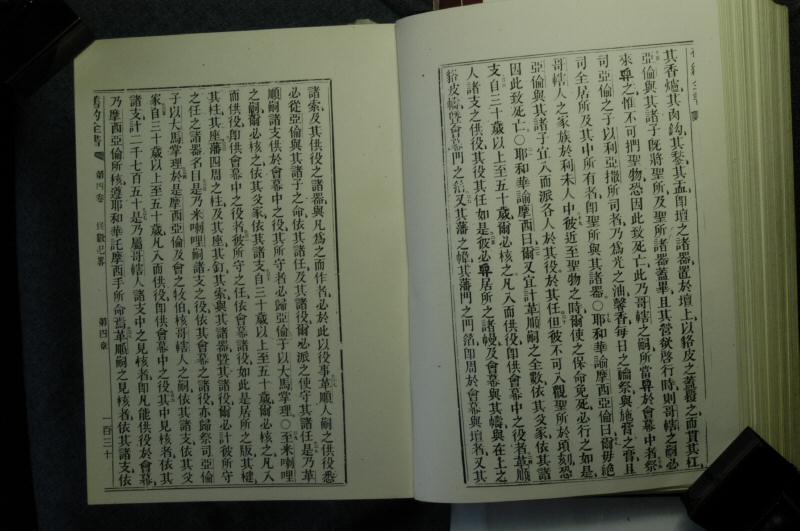 其香爐其肉鈎其藜其盂卽壇之諸器置於壇上以貉皮之蓋覆之而貫其杠
亞倫與其諸子旣將聖所及聖所諸器蓋畢且其營欲啓行時則哥轄之嗣必
來舁之惟不可捫聖物恐因此致死亡此乃哥轄之嗣所當舁於會幕中者祭
司亞倫之子以利亞撒所司者乃爲光之油馨香每日之禴祭與施膏之膏且
司全居所及其中所有者卽聖所與其諸器○耶和華諭摩西亞倫曰爾毋絕
哥轄人之家族於利未人中彼近至聖物之時爾使之保命免死必行之如是
亞倫與其諸子宜入而派各人於其役於其任但彼不可入觀聖所於頃刻恐
因此致死亡○耶和華諭摩西曰爾又宜計革順嗣之全數依其父家依其諸
支自三十歲以上至五十歲爾必核之凡入而供役卽供會幕中之役者革順
人諸支之供役其役其任如是彼必舁居所之諸幔及會幕與其幬與在上之
貉皮幬曁會幕門之箔又其藩之幃其藩門之門箔卽周於會幕與壇者又其
諸索及其供役之諸器與凡爲之而作者必於此以役事革順人嗣之供役悉
必從亞倫與其諸子之命依其諸任及其諸役爾必派之使守其諸任是乃革
順嗣諸支供於會幕中之役其所守者必歸亞倫子以大馬掌理○至米喇哩
之嗣爾必核之依其父家依其諸支自三十歲以上至五十歲爾必核之凡入
而供役卽供會幕中之役者彼所守之任依會幕諸役如此是居所之版其楗
其柱其座藩四周之柱及其座其釘其索與其諸器曁其諸役爾必計彼所守
之任之諸器名目是乃米喇哩嗣諸支之役依其會幕之諸役亦歸祭司亞倫
子以大馬掌理於是摩西亞倫及會之牧伯核哥轄人之嗣依其諸支依其父
家自三十歲以上至五十歲凡入而供役卽供會幕中之役其中見核者依其
諸支計二千七百五十是乃屬哥轄人諸支中之見核者卽凡能供役於會幕
乃摩西亞倫所核遵耶和華託摩西手所命焉革順嗣之見核者依其諸支依
舊約全書 第四卷 民數紀畧 第四章 一百三十